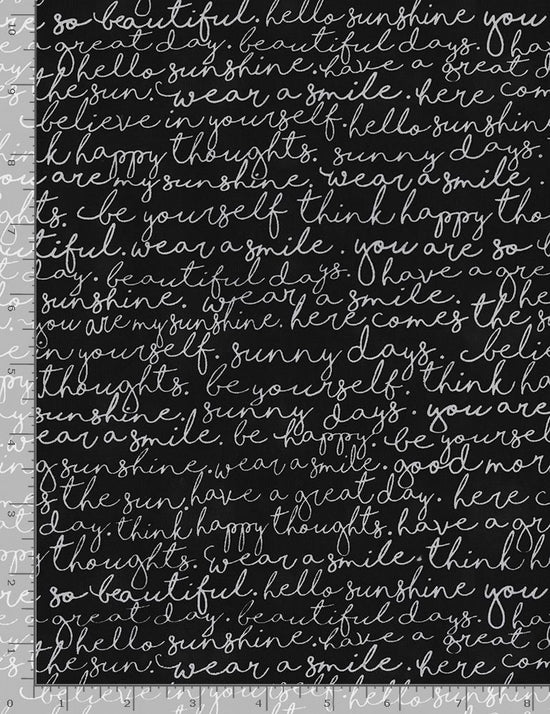 re so beautiful. hello sunshine you
e a great day. beautiful days. ha
ay. hello sunshine. have a great d
s the sun. wear a smile. here com
believe in yourself. hello sunshin
nk happy thoughts. sunny days.
ou are my sunshine. wear a smile.
ghts. be yourself think happy tho
utiful. wear a smile. you are so b
t day. beautiful days. have a gre
lo sunshine. wear a smile. the
you are my sunshine. here comes the s
e in yourself. sunny days. belie
ppy thoughts. be yourself. think ha
y sunshine. sunny days. you are
wear a smile. be happy. be yoursel
ing sunshine. wear a smile. good mor
s the sun. have a great day. here c
at day. think happy thoughts. have a gr
ppy thoughts. wear a smile. think h
re so beautiful. hello sunshine you
e a great day. beautiful days. ha
ay. hello sunshine. have a great d
s the sun. wear a smile. here com
believe in yourself. hello sunshin
10
9
8
7
6
5
4
3
2
1
0 1 2 3 4 5 6 7 8